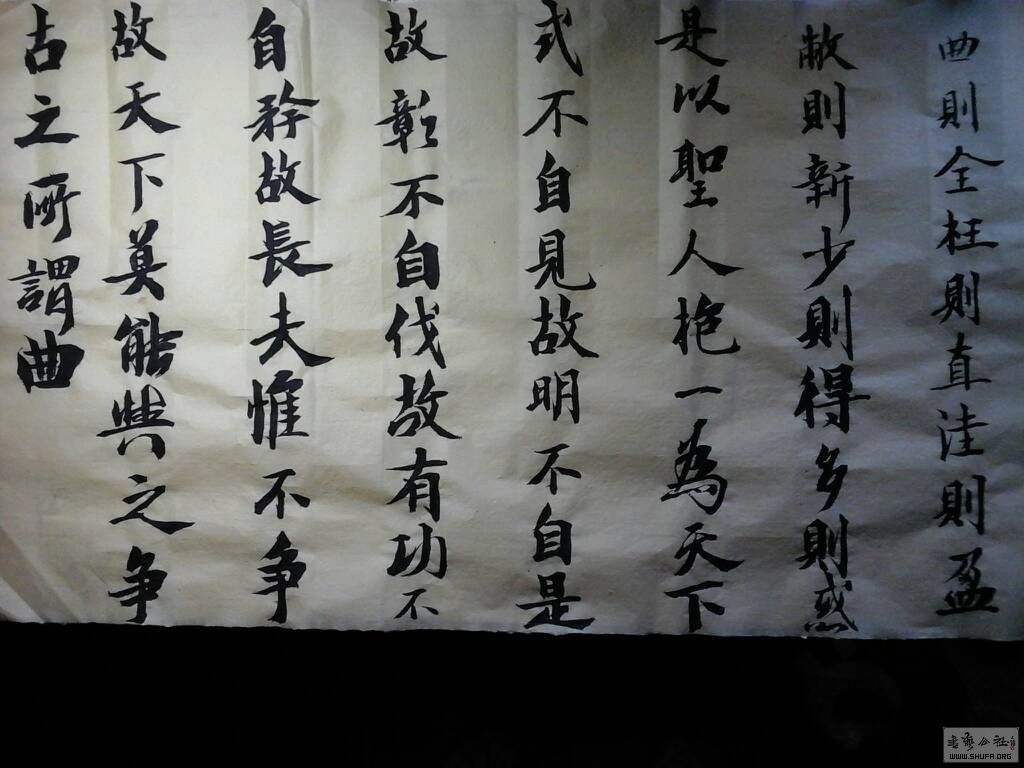 曲則全枉則直洼則盈
敝則新少則得多則惑
是以聖人抱一為天下
式不自見故明不自是
故彰不自伐故有功不
自矜故長夫惟不争
故天下莫能與之争
古之所謂曲
书艺公社
WWW.SHUFA.ORG